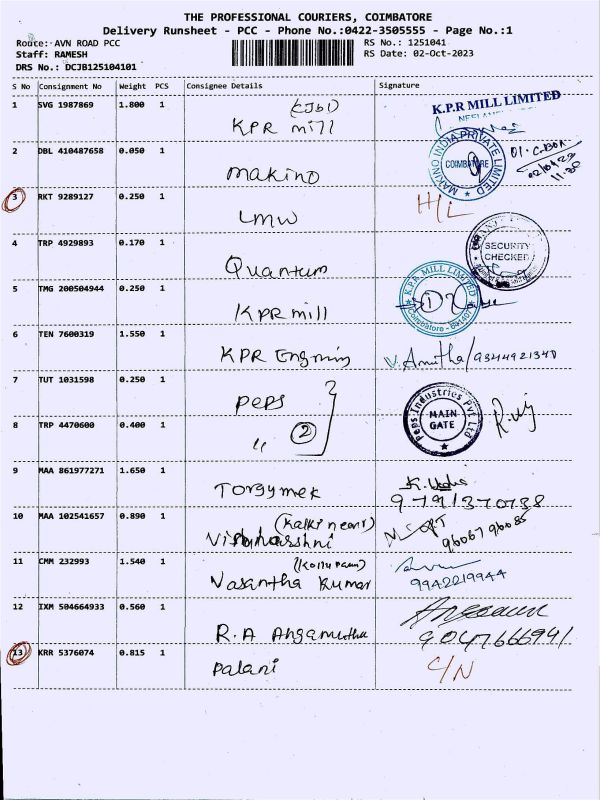 THE PROFESSIONAL COURIERS, COIMBATORE
Delivery Runsheet - PCC - Phone No.:0422-3505555 - Page No.:1
Route: AVN ROAD PCC
RS No.: 1251041
Staff: RAMESH
RS Date: 02-Oct-2023
DRS No.: DCJB125104101
S No Consignment No Weight PCS Consignee Details Signature
1 SVG 1987869 1.800 1 KPR mill K.P.R MILL LIMITED
2 DBL 410487658 0.050 1 Makino MAKINO INDIA PRIVATE LIMITED COIMBATORE
3 RKT 9289127 0.250 1 LMW H/L
4 TRP 4929893 0.170 1 Quantum SECURITY CHECKED
5 TMG 200504944 0.250 1 KPR mill K.P.R. MILL LIMITED Coimbatore - 641407
6 TEN 7600319 1.550 1 KPR Engning V. Amitha/9344921340
7 TUT 1031598 0.250 1 Peps Peps Industries Pvt Ltd MAIN GATE
8 TRP 4470600 0.400 1 " 2
9 MAA 861977271 1.650 1 Torgymek
9791370738
10 MAA 102541657 0.890 1
96067 96085
11 CMM 232993 1.540 1 Vasantha Kumar
9942219944
12 IXM 504664933 0.560 1 R.A Angamutha
9047666941
13 KRR 5376074 0.815 1 Palani C/N